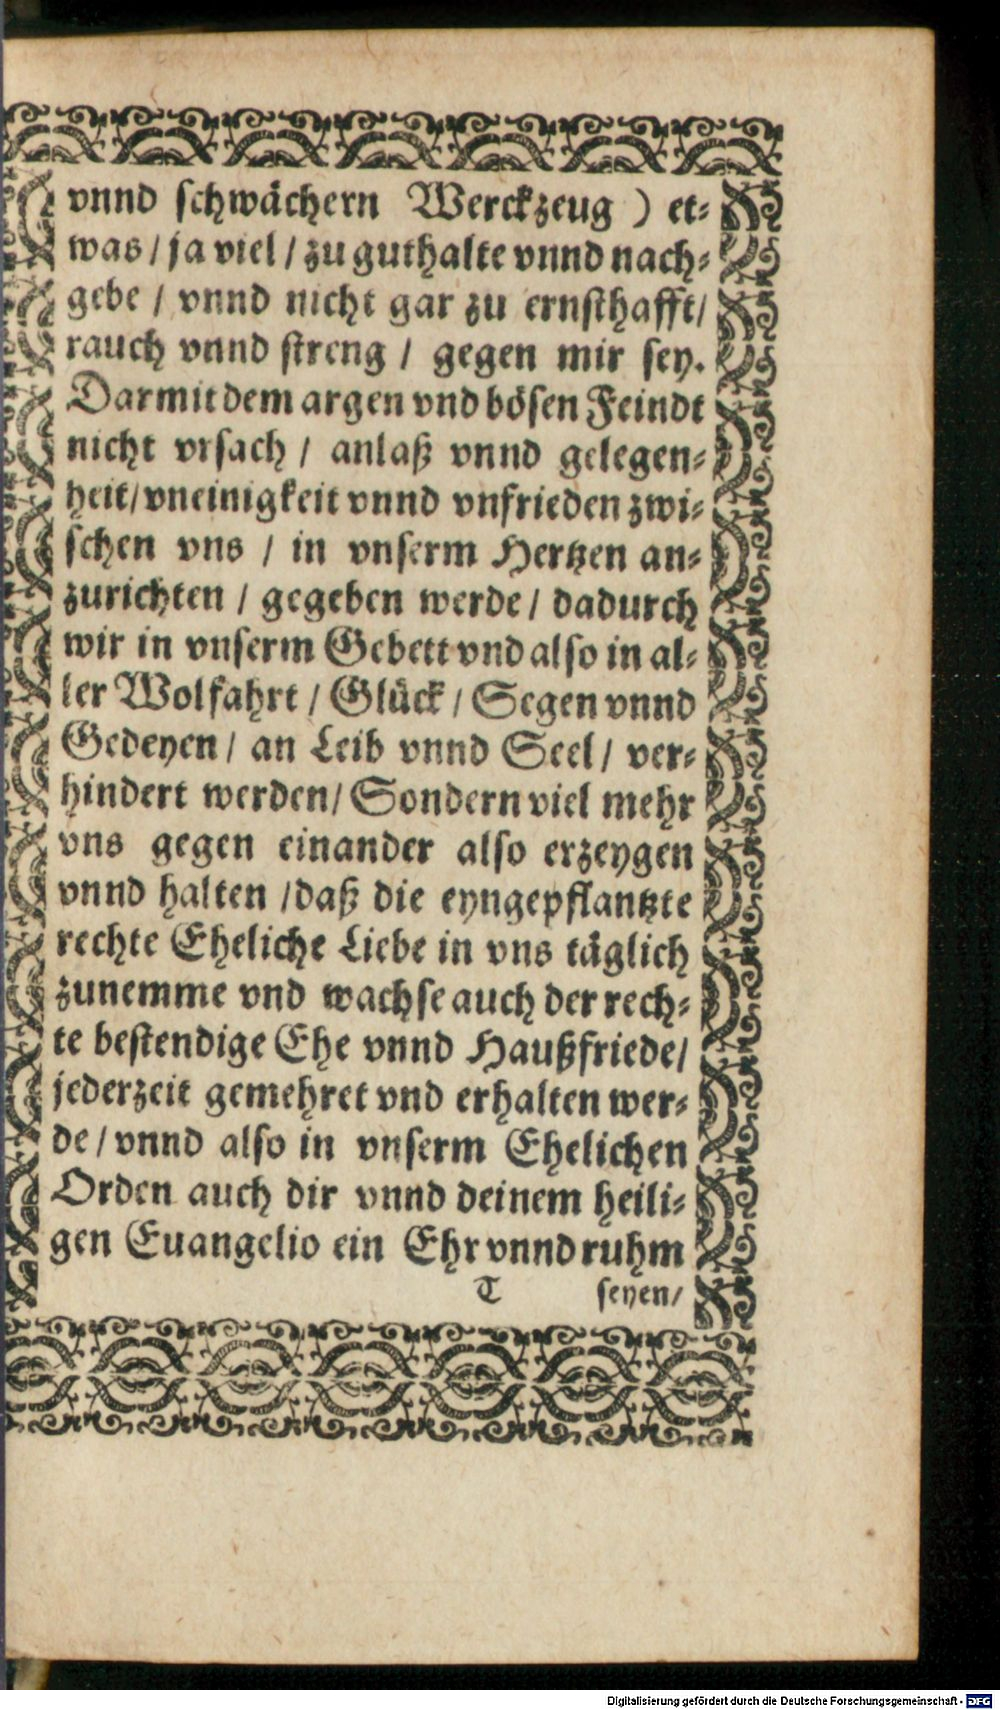 vnnd schwächern Werckzeug ) et⸗
was / ja viel / zu guthalte vnnd nach⸗
gebe / vnnd nicht gar zu ernsthafft /
rauch vnnd streng / gegen mir sey.
Darmit dem argen vnd bösen Feindt
nicht vrsach / anlaß vnnd gelegen⸗
heit / vneinigkeit vnnd vnfrieden zwi⸗
schen vns / in vnserm Hertzen an⸗
zurichten / gegeben werde / dadurch
wir in vnserm Gebett vnd also in al⸗
ler Wolfahrt / Glück / Segen vnnd
Gedeyen / an Leib vnnd Seel / ver⸗
hindert werden / Sondern viel mehr
vns gegen einander also erzeygen
vnnd halten / daß die eyngepflantzte
rechte Eheliche Liebe in vns täglich
zunemme vnd wachse auch der rech⸗
te bestendige Ehe vnnd Haußfriede /
jederzeit gemehret vnd erhalten wer⸗
de / vnnd also in vnserm Ehelichen
Orden auch dir vnnd deinem heili⸗
gen Euangelio ein Ehr vnnd ruhm
T seyen /
Digitalisierung gefördert durch die Deutsche Forschungsgemeinschaft - DFG